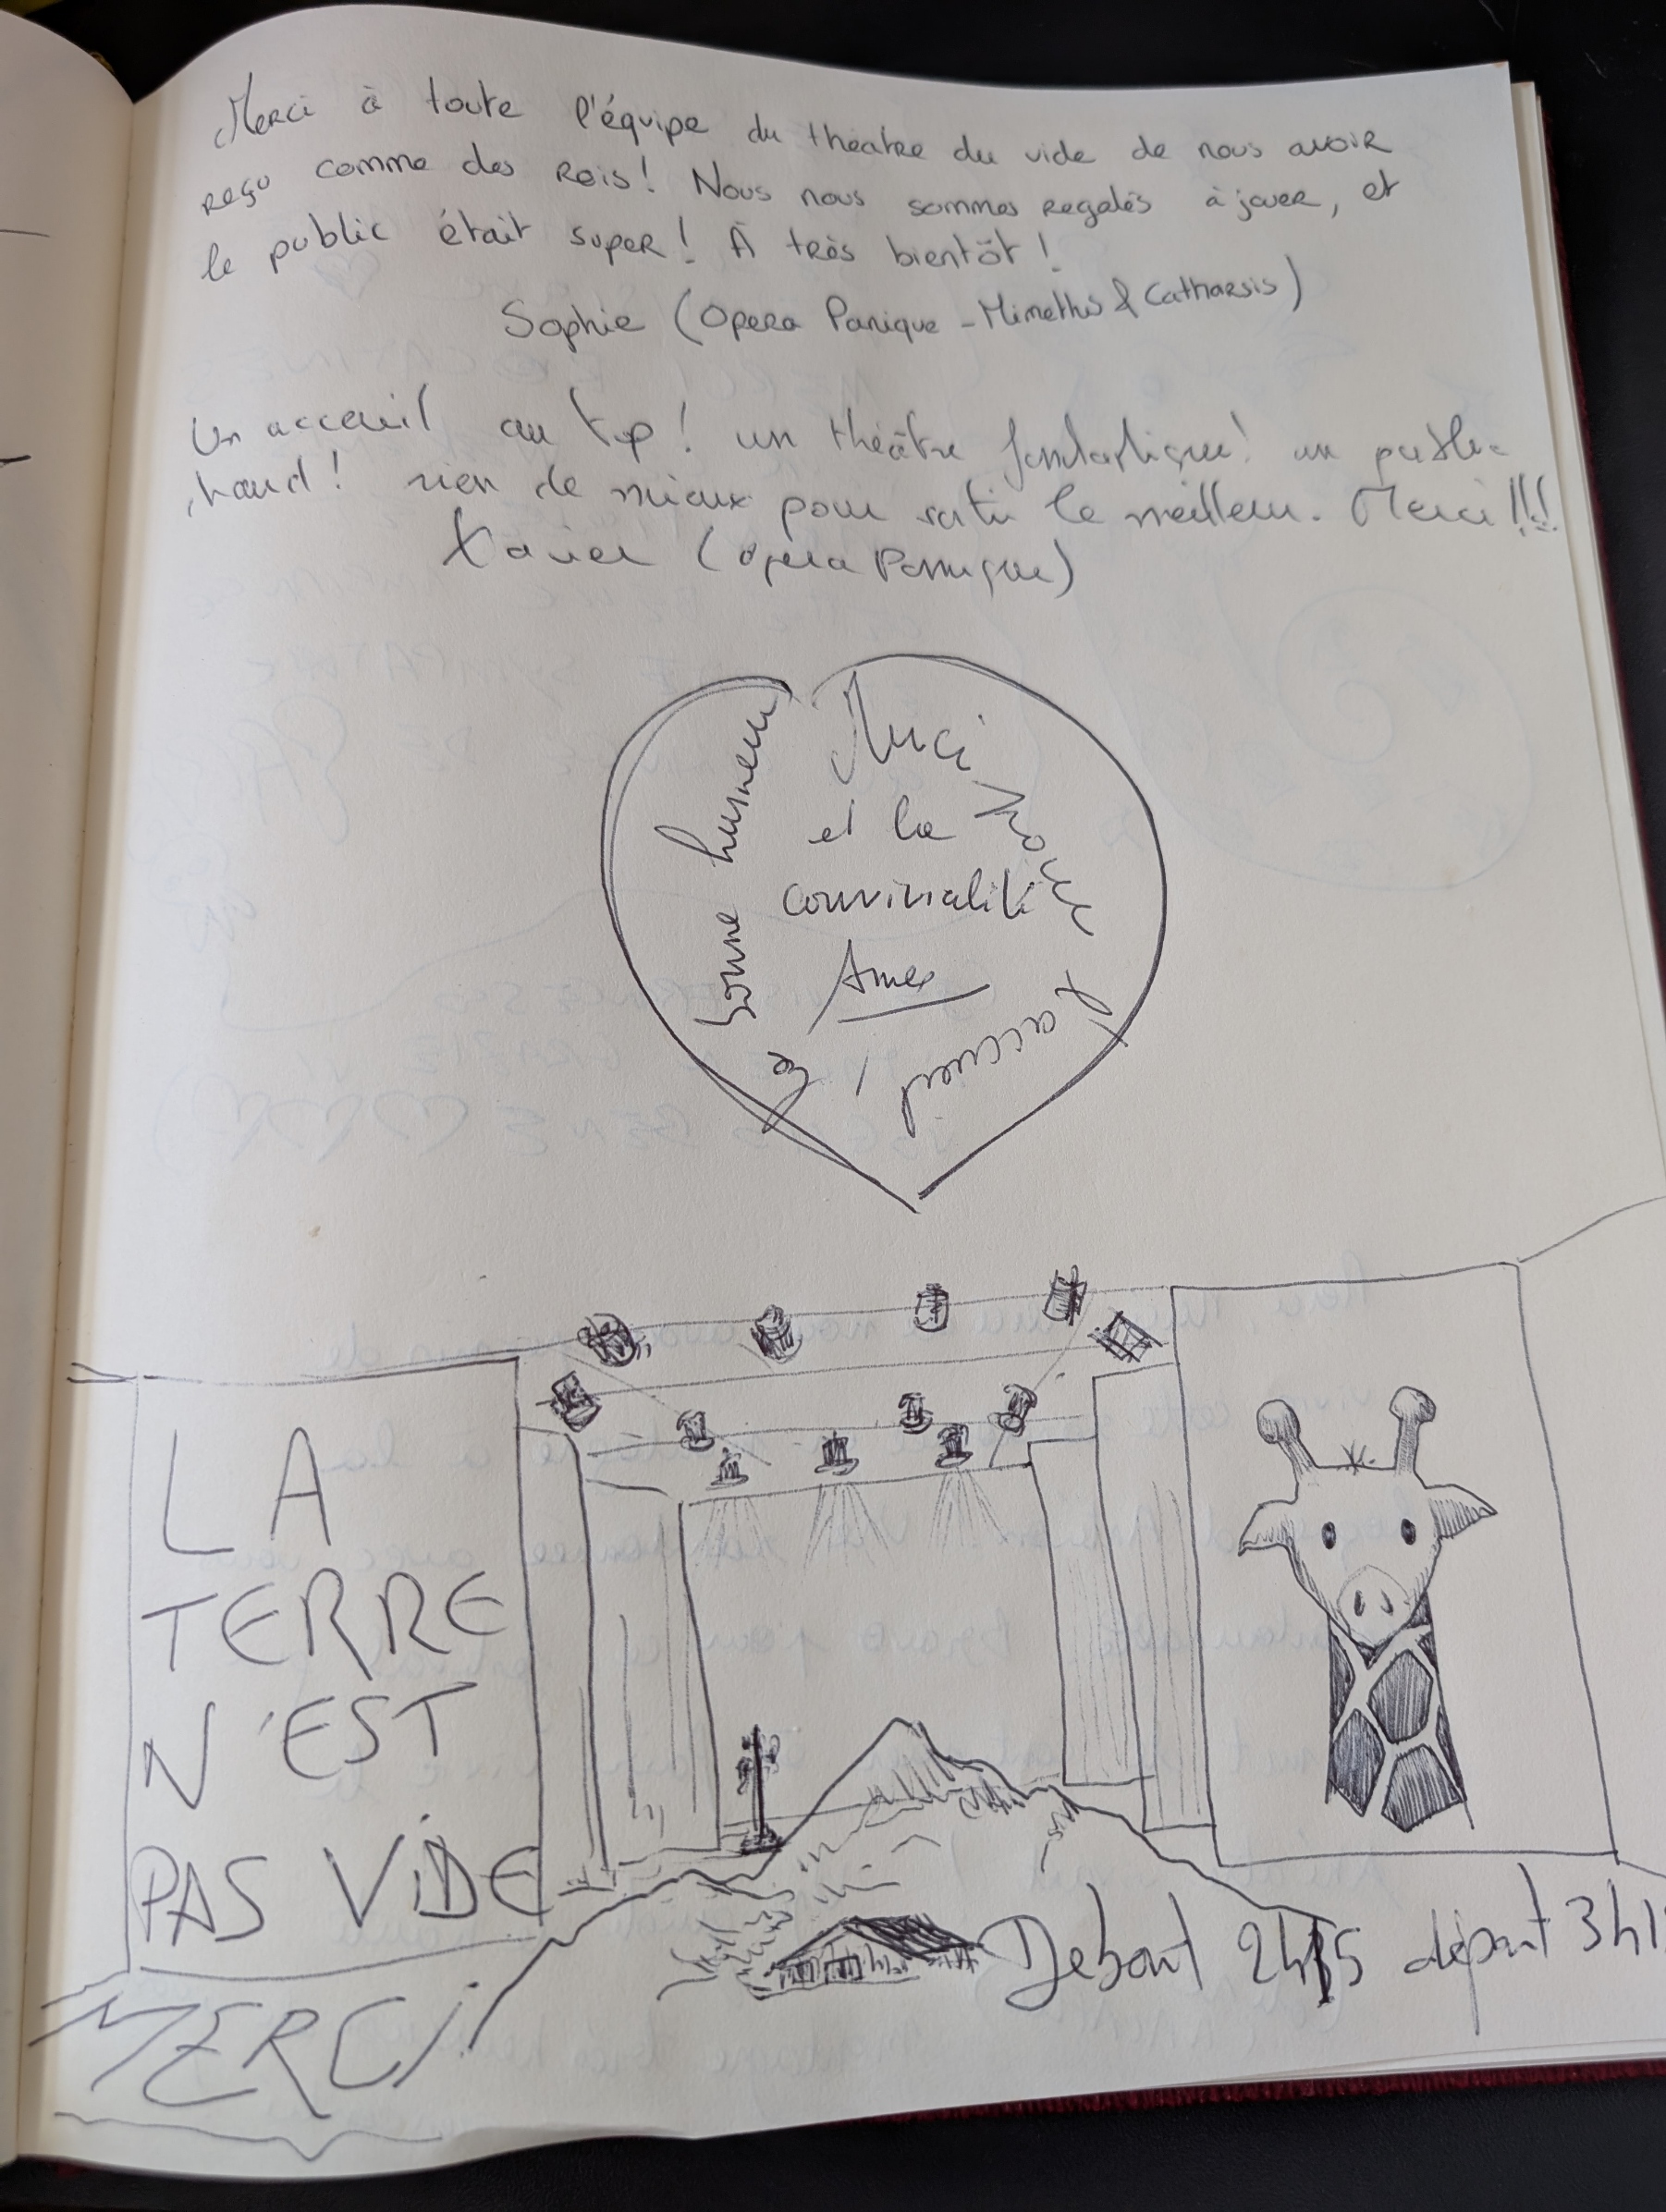 Merci à toute l'équipe du théatre du vide de nous avoir
reçu comme des rois! Nous nous sommes regalés à jouer, et
le public était super! À très bientôt!
Sophie (Opera Panique - Mimethis & Catharsis)
Un acceuil au top! un théâtre fantastique! un public
chaud! rien de mieux pour sortir le meilleur. Merci!!!
Xavier (Opera Panique)
Merci pour
l'accueil,
la
bonne humeur
et la
convivialité
LA
TERRE
N'EST
PAS VIDE
MERCI
Debout 2h15 départ 3h1